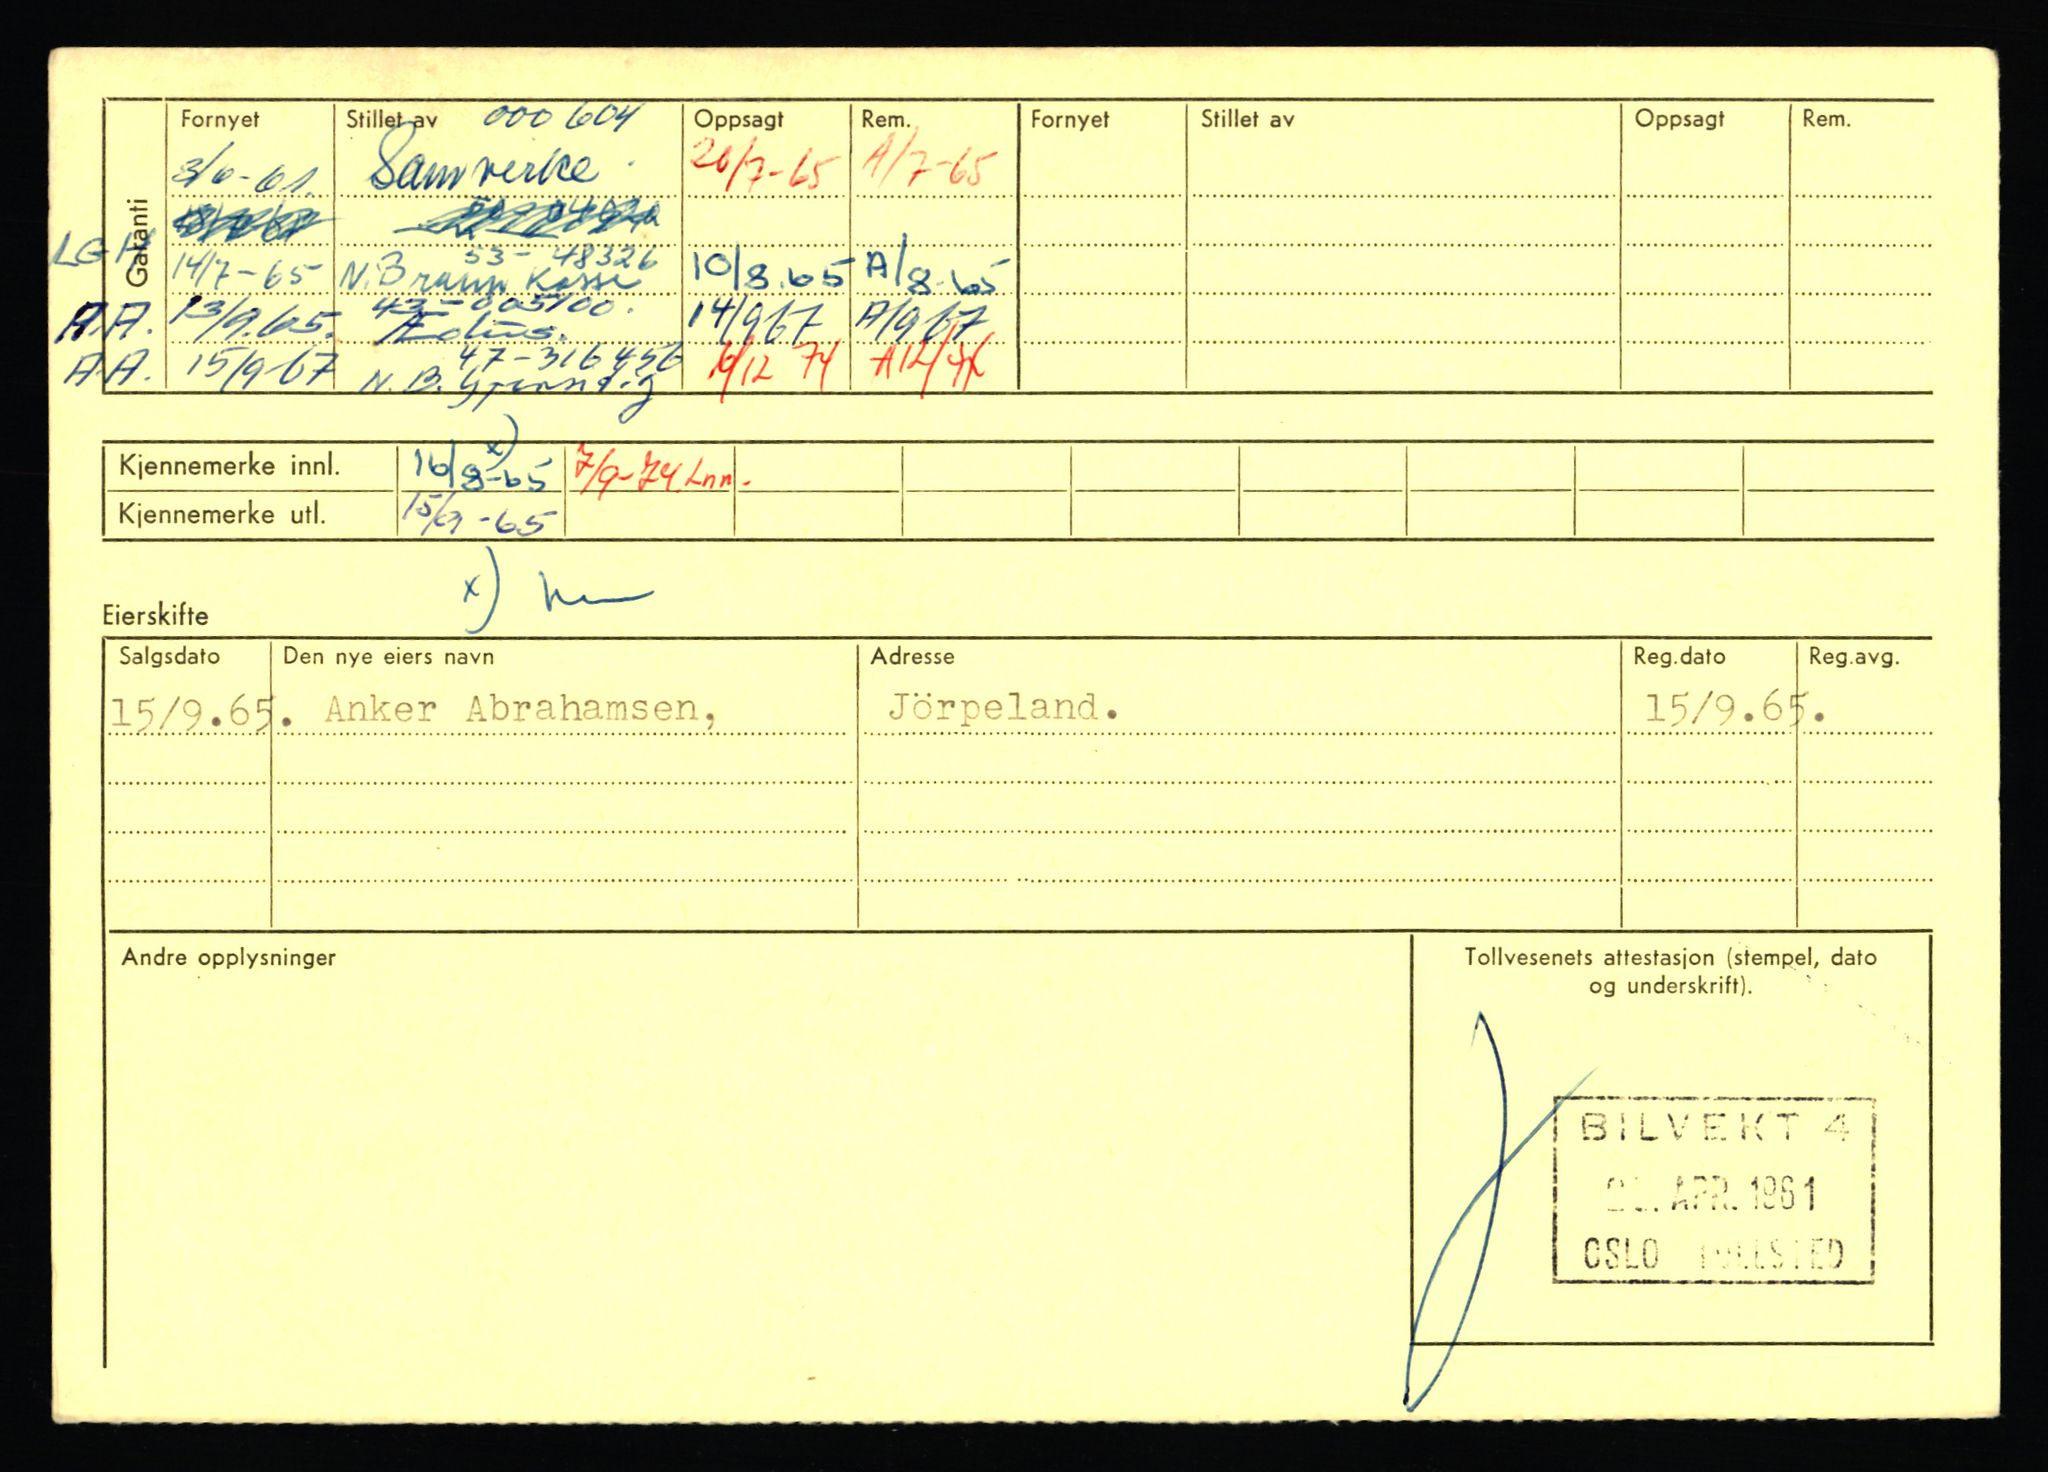 Garanti
Fornyet Stillet av 000 604 Oppsagt Rem. Fornyet Stillet av Oppsagt Rem.
3/6-61. Samvirke 20/7-65 A/7-65
53-48326
LGH 14/7-65 N. Brann Kasse 10/8.65 A/8-65
43-005100.
A.A. 13/9.65. Æolus. 14/9 67 A/9 67
47-316456
A.A. 15/9-67 N.B. Gjensidig /12 74 A12/74
x)
Kjennemerke innl. 16/8-65 7/9-74. Lnn.
Kjennemerke utl. 15/9-65
x)
Eierskifte
Salgsdato Den nye eiers navn Adresse Reg.dato Reg.avg.
15/9.65. Anker Abrahamsen, Jörpeland. 15/9.65.
Andre opplysninger
Tollvesenets attestasjon (stempel, dato
og underskrift).
BILVEKT 4
APR. 1961
OSLO TOLLSTED